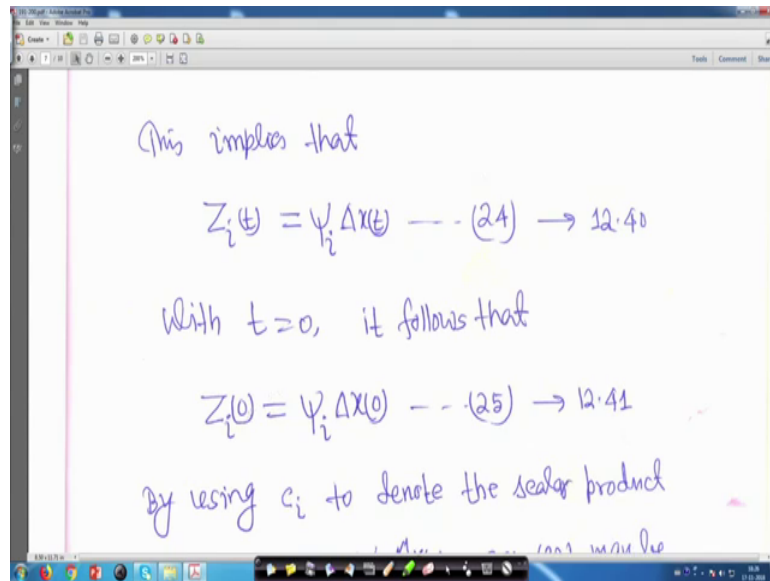 File Edit View Window Help
Create
7 / 18
Tools Comment Share
This implies that
Z_i(t) = ψ_i Δx(t) ---- (24) → 12.40
With t=0, it follows that
Z_i(0) = ψ_i Δx(0) --- (25) → 12.41
By using c_i to denote the scalar product
may be